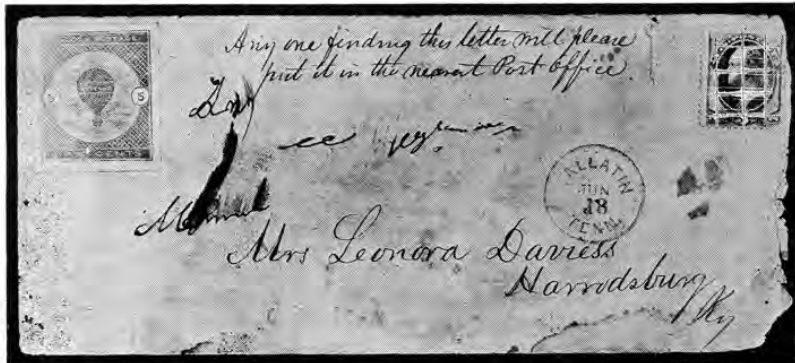 Any one finding this letter will please
put it in the nearest Post Office.
GALLATIN
JUN
18
TENN.
Mrs Leonora Daviess
Harrodsburg
Ky
5
CENTS